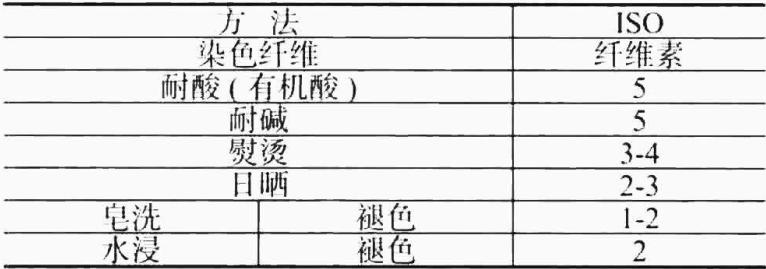 方 法 ISO
染色纤维 纤维素
耐酸(有机酸) 5
耐碱 5
熨烫 3-4
日晒 2-3
皂洗 褪色 1-2
水浸 褪色 2